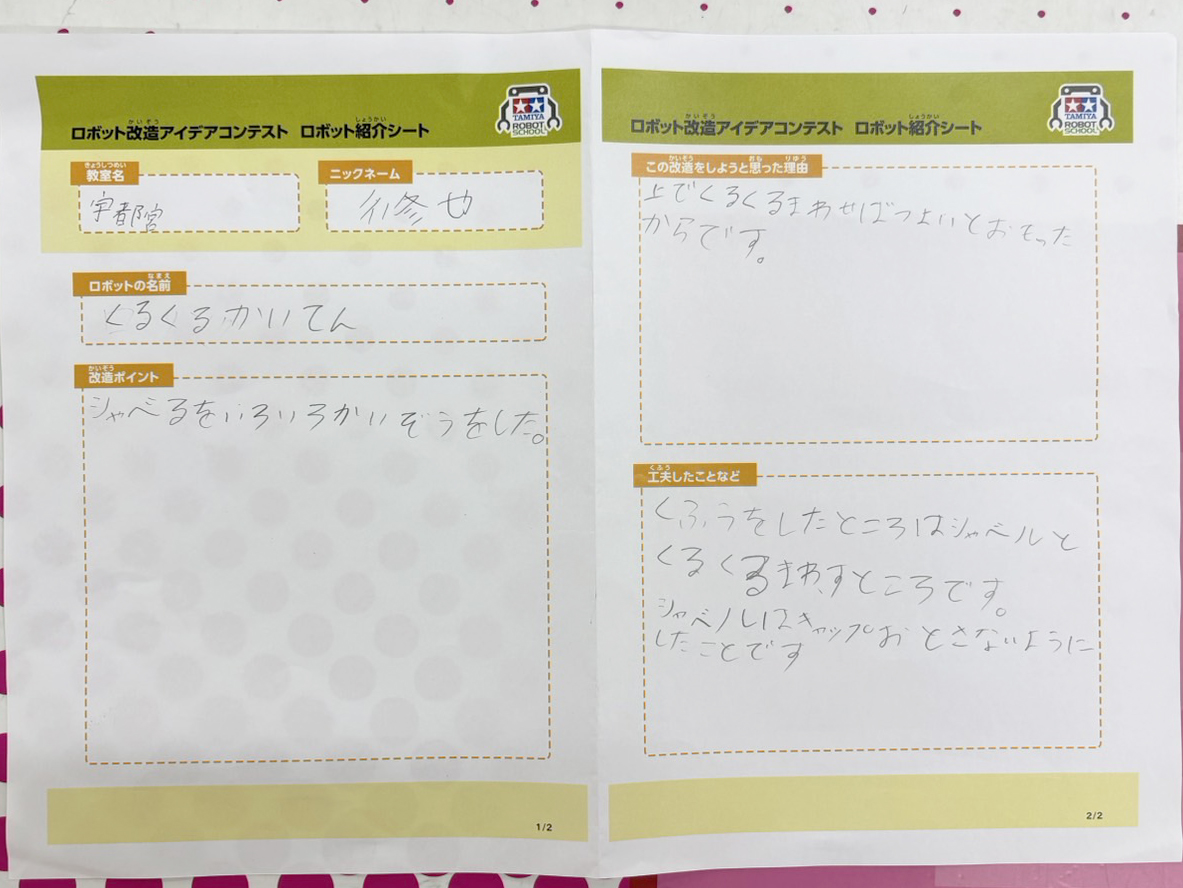 ロボット改造アイデアコンテスト ロボット紹介シート
かいぞう しょうかい
TAMIYA
ROBOT
SCHOOL
きょうしつめい
教室名
宇都宮
ニックネーム
修也
なまえ
ロボットの名前
くるくるかいてん
かいぞう
改造ポイント
シャベるをいろいろかいぞうをした。
1/2
ロボット改造アイデアコンテスト ロボット紹介シート
かいぞう しょうかい
TAMIYA
ROBOT
SCHOOL
かいぞう おも りゆう
この改造をしようと思った理由
上でくるくるまわせばつよいとおもった
からです。
くふう
工夫したことなど
くふうをしたところはシャベルと
くるくるまわすところです。
シャベルはキャップおとさないように
したことです
2/2